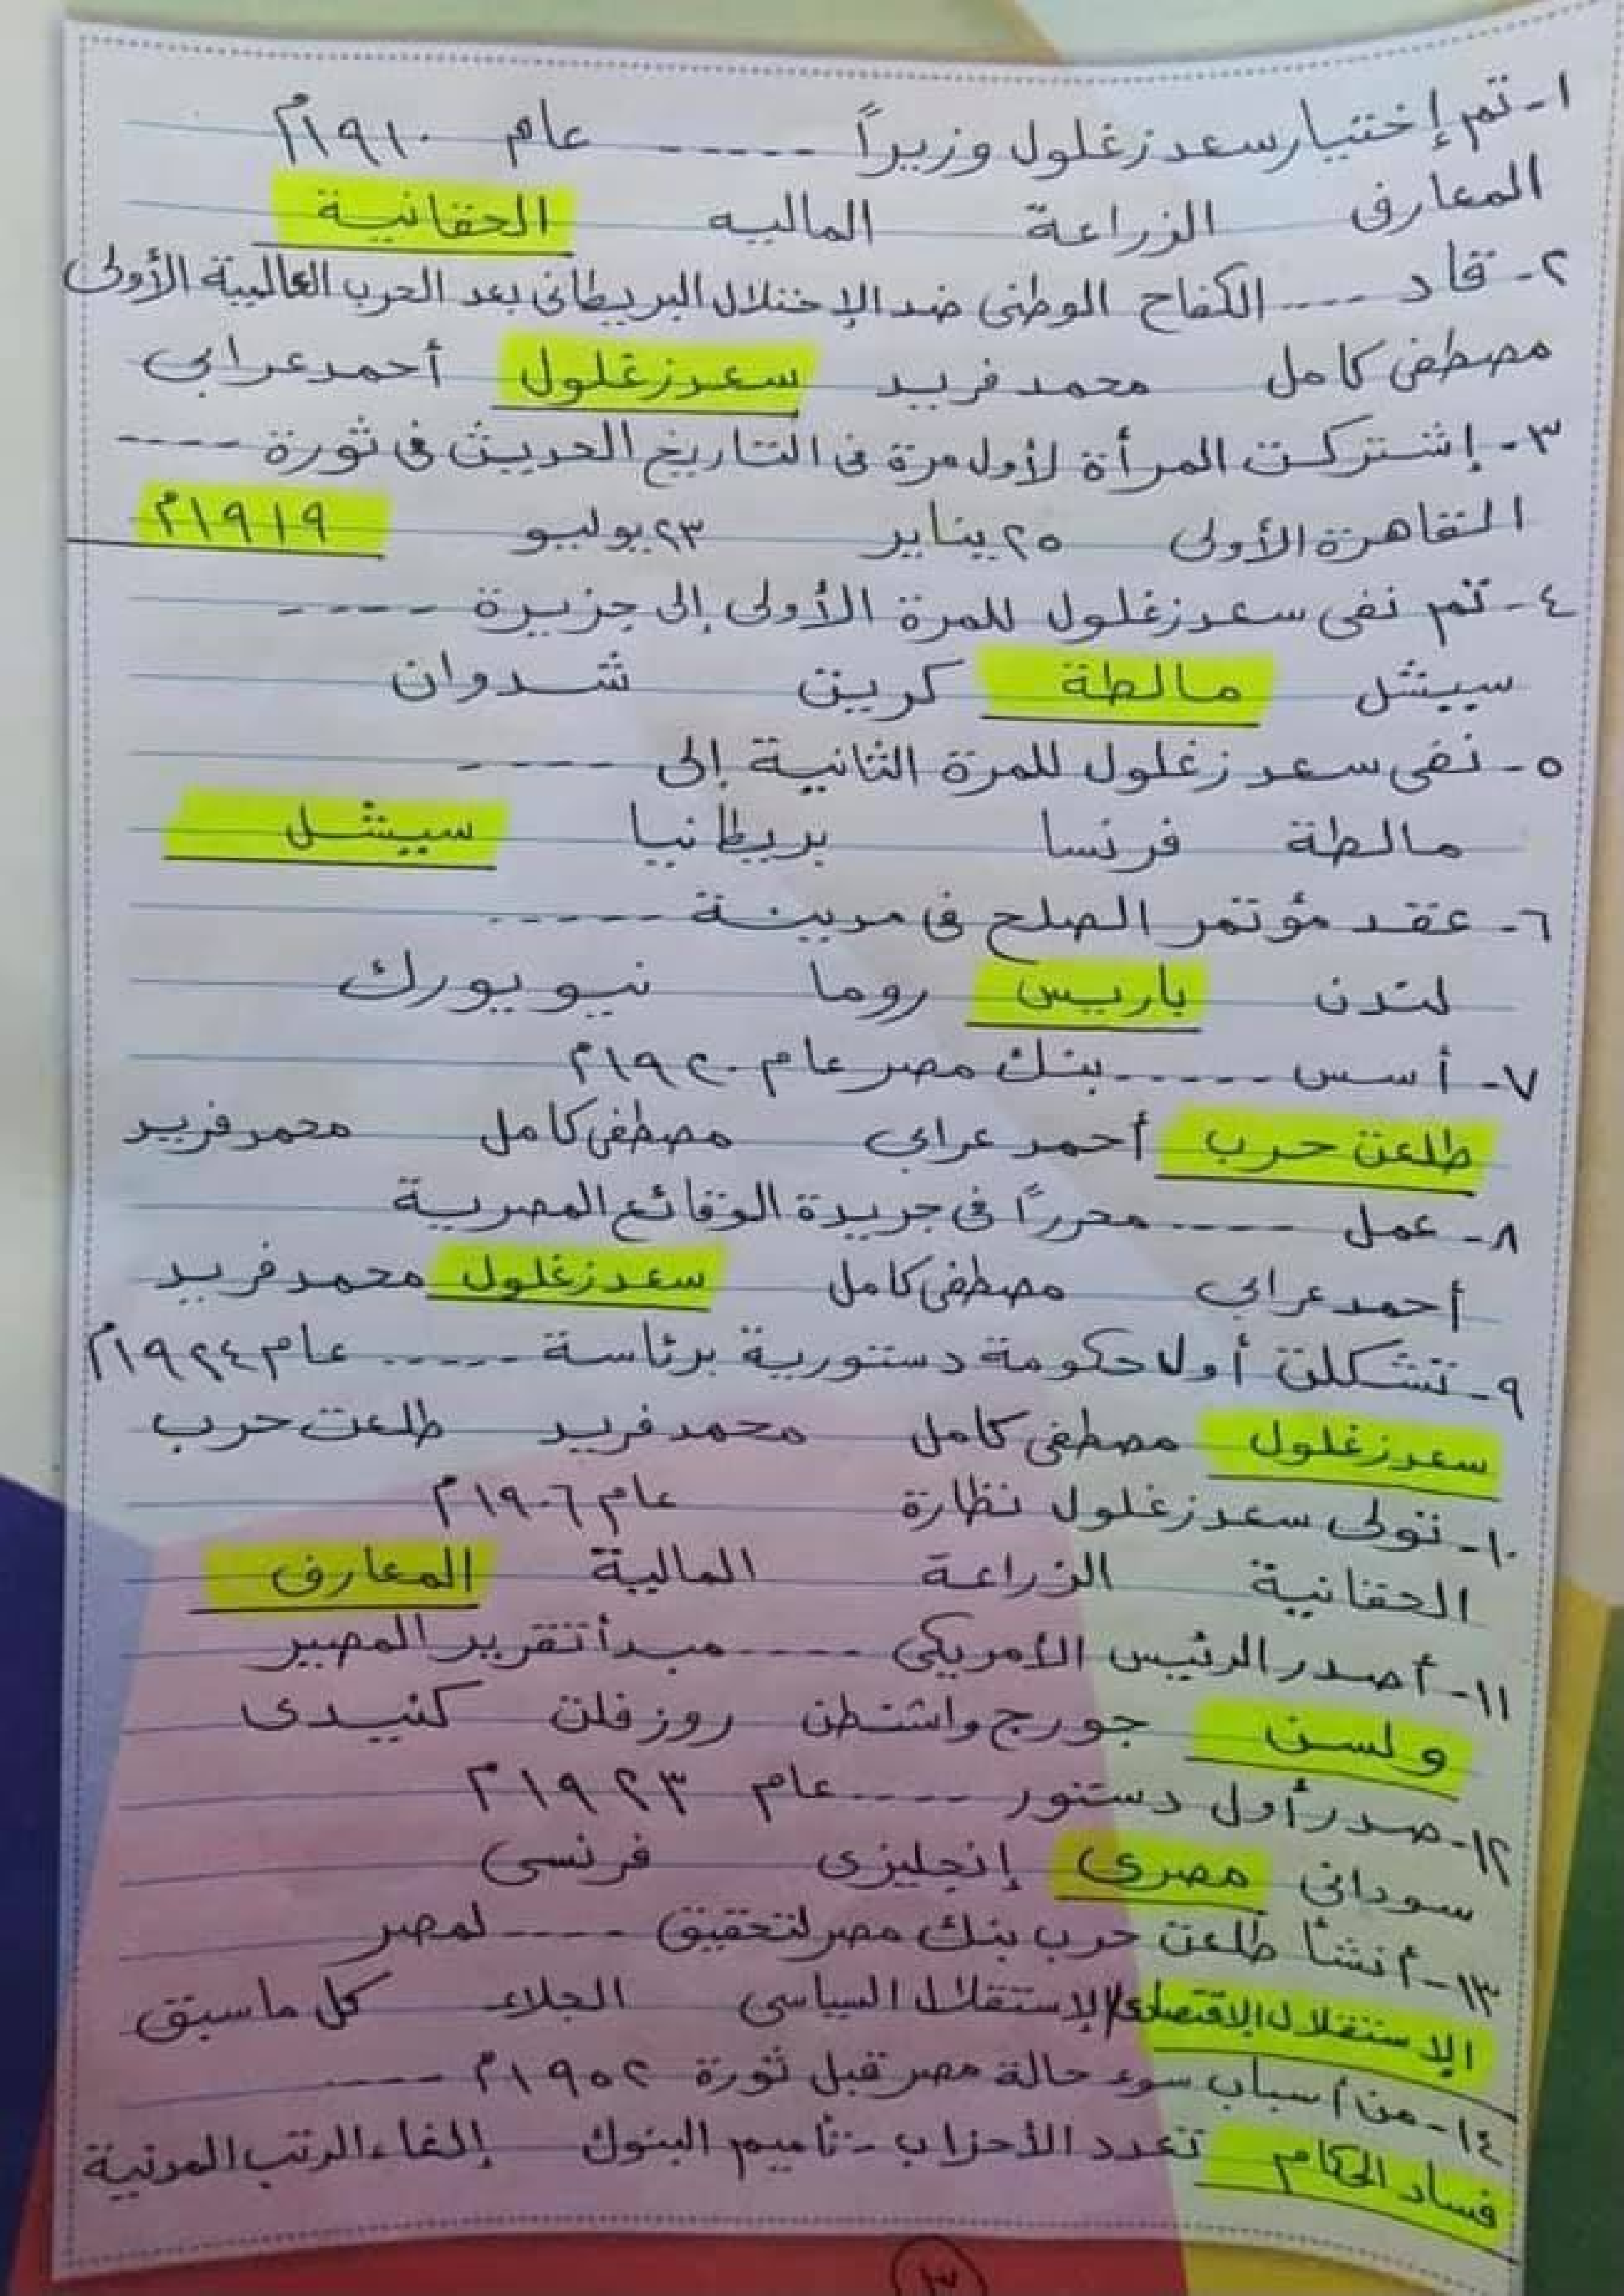 ١- تم إختيار سعد زغلول وزيراً ----- عام ١٩١٠م
المعارف الزراعة الماليه الحقانية
٢- قاد ---- الكفاح الوطنى ضد الإحتلال البريطانى بعد الحرب العالمية الأولى
مصطفى كامل محمد فريد سعد زغلول أحمد عرابى
٣- إشتركت المرأة لأول مرة فى التاريخ الحديث فى ثورة ----
القاهرة الأولى ٢٥ يناير ٢٣ يوليو ١٩١٩م
٤- تم نفى سعد زغلول للمرة الأولى إلى جزيرة ----
سيشل مالطة كريت شدوان
٥- نفى سعد زغلول للمرة الثانية إلى ----
مالطة فرنسا بريطانيا سيشل
٦- عقد مؤتمر الصلح فى مدينة -----
لندن باريس روما نيويورك
٧- أسس ----- بنك مصر عام ١٩٢٠م
طلعت حرب أحمد عرابي مصطفى كامل محمد فريد
٨- عمل ---- محرراً فى جريدة الوقائع المصرية
أحمد عرابي مصطفى كامل سعد زغلول محمد فريد
٩- تشكلت أول حكومة دستورية برئاسة ----- عام ١٩٢٤م
سعد زغلول مصطفى كامل محمد فريد طلعت حرب
١٠- تولى سعد زغلول نظارة عام ١٩٠٦م
الحقانية الزراعة المالية المعارف
١١- أصدر الرئيس الأمريكى ---- مبدأ تقرير المصير
ولسن جورج واشنطن روزفلت كنيدى
١٢- صدر أول دستور ---- عام ١٩٢٣م
سودانى مصرى إنجليزى فرنسى
١٣- أنشأ طلعت حرب بنك مصر لتحقيق ---- لمصر
الإستقلال الإقتصادى/الإستقلال السياسى الجلاء كل ما سبق
١٤- من أسباب سوء حالة مصر قبل ثورة ١٩٥٢م ----
فساد الحكام تعدد الأحزاب - تأميم البنوك إلغاء الرتب المدنية
١٣